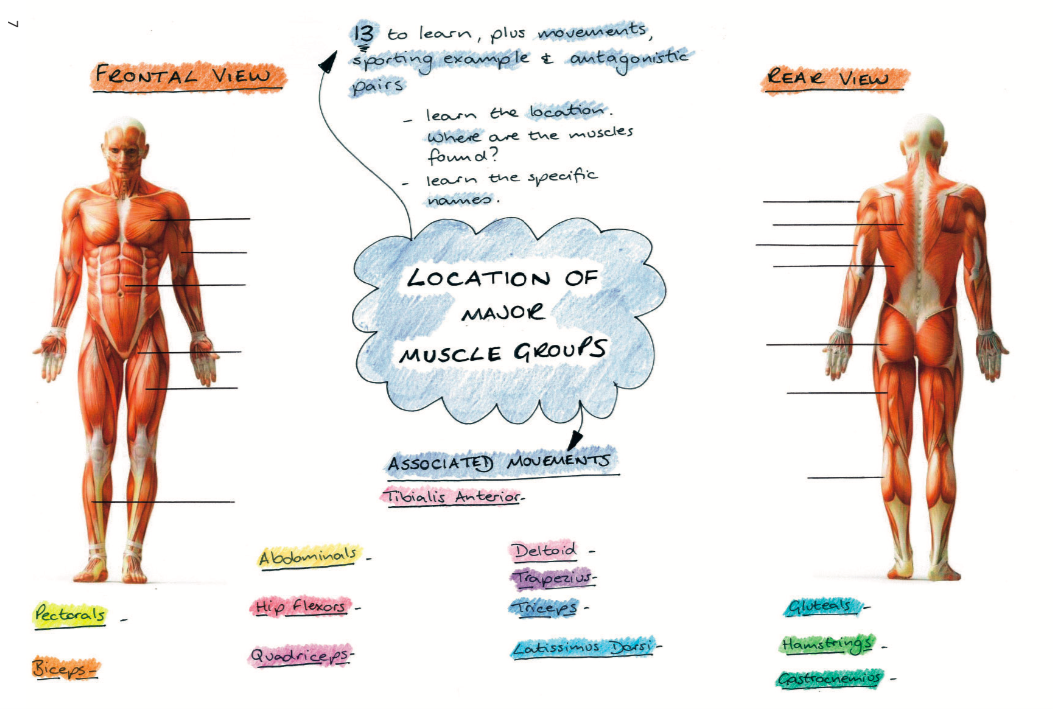 7
13 to learn, plus movements,
sporting example & antagonistic
pairs
FRONTAL VIEW
REAR VIEW
- learn the location.
Where are the muscles
found?
- learn the specific
names.
LOCATION OF
MAJOR
MUSCLE GROUPS
ASSOCIATED MOVEMENTS
Tibialis Anterior-
Abdominals -
Deltoid -
Trapezius-
Pectorals -
Hip Flexors -
Triceps -
Gluteals -
Biceps-
Quadriceps-
Latissimus Dorsi-
Hamstrings -
Gastrocnemios -